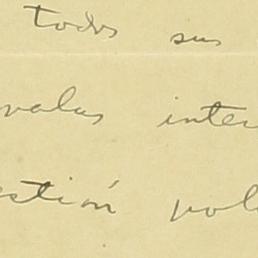 todos sus
valas inter
estión vol